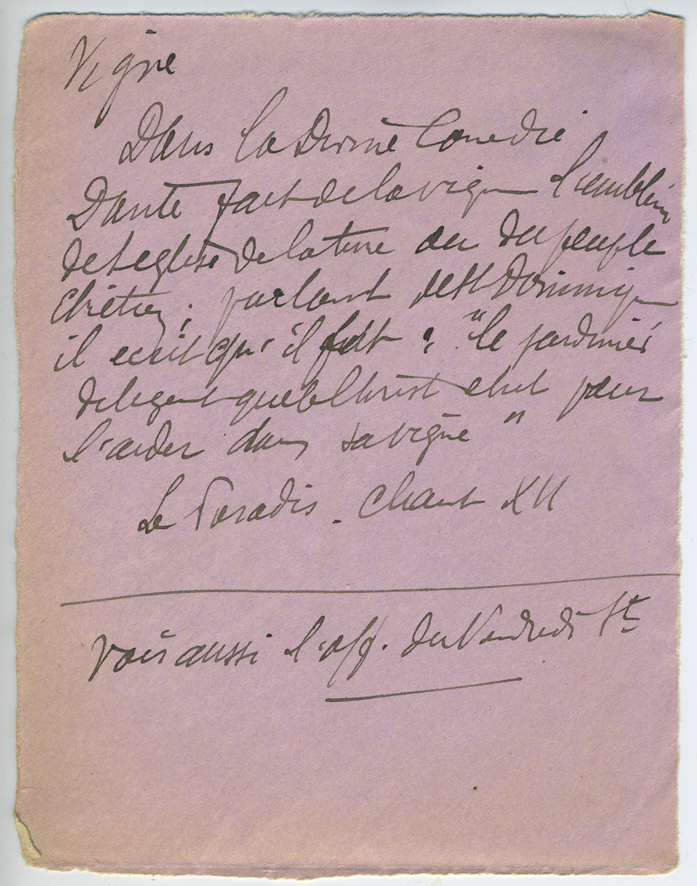 Vigne
Dans la Divine Comedie
Dante fait de la vigne l'emblème
de l'eglise de la terre ou du peuple
chrétien ; parlant de St Dominique
il ecrit qu'il fut : "le jardinier
diligent que le Christ elut pour
l'aider dans sa vigne"
Le Paradis - Chant XII
Voir aussi l'off. du Vendredi St